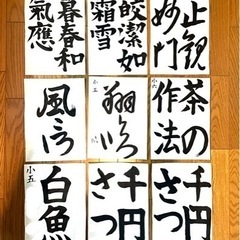 暮春和
氣應
皎潔如
霜雪
止観
妙門
風
小五
翔
小六
茶の
作法
小五
白魚
千円
さつ
千円
さつ